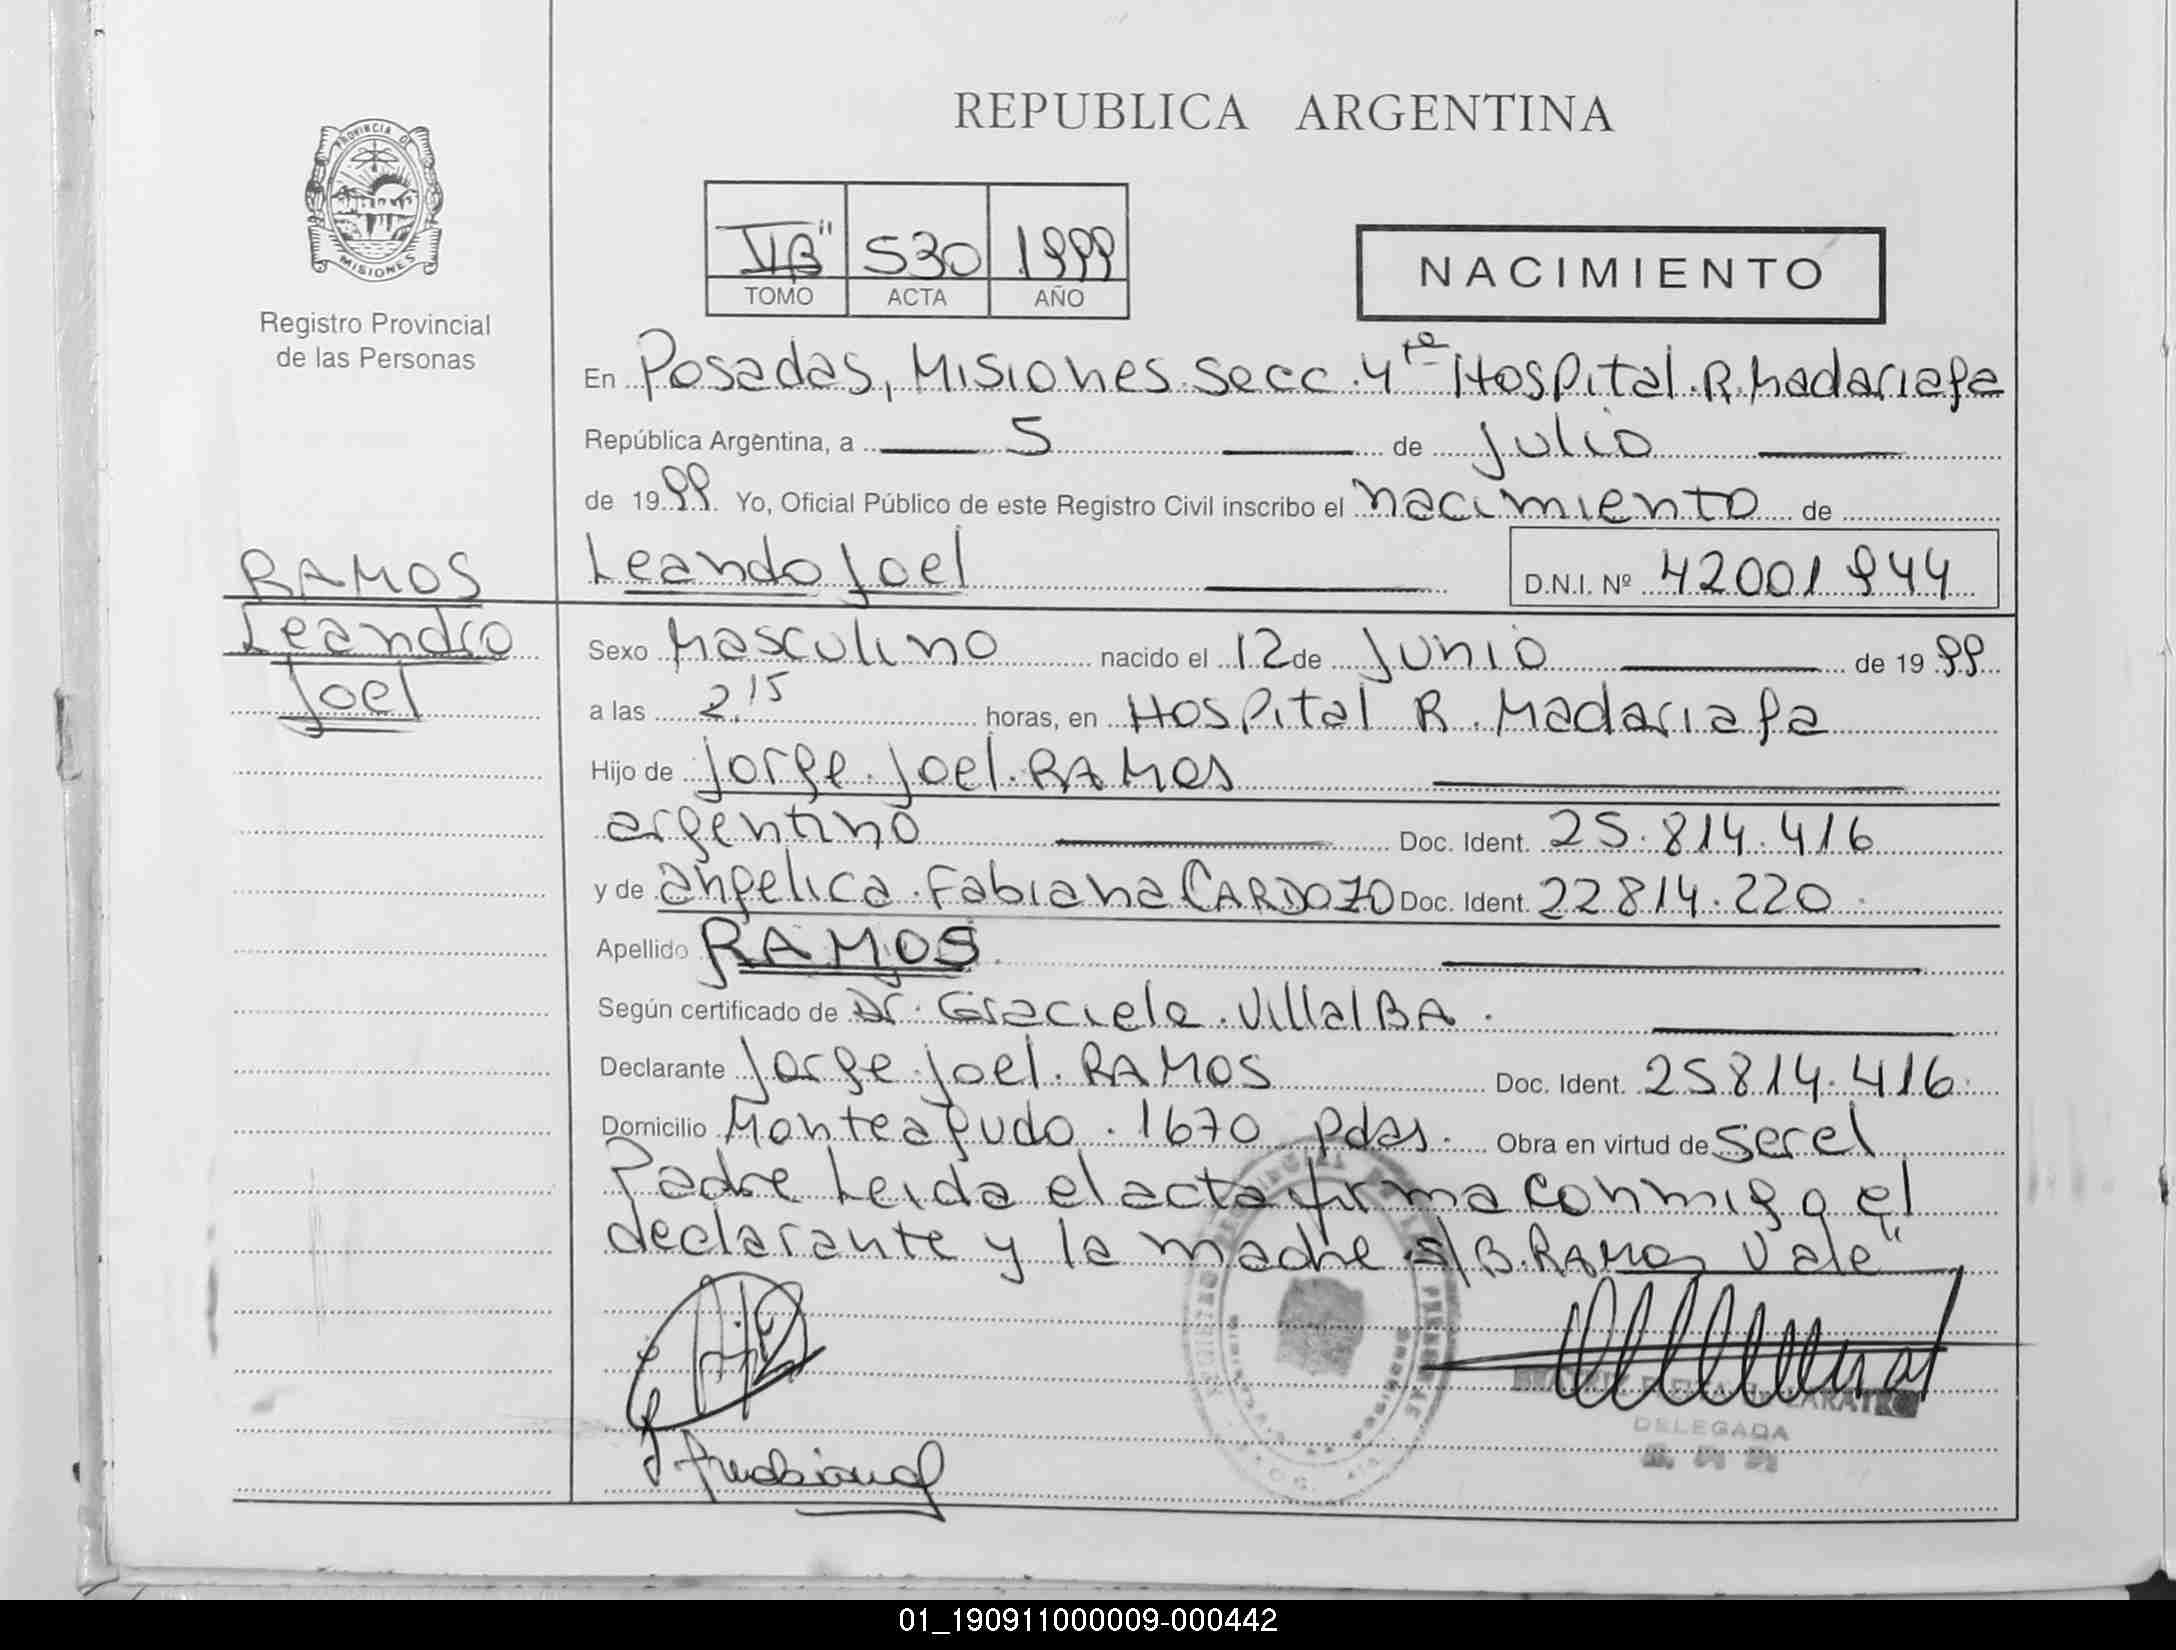 REPUBLICA ARGENTINA
PROVINCIA DE
MISIONES
Registro Provincial
de las Personas
530 1999
TOMO ACTA AÑO
NACIMIENTO
En Posadas, Misiones Secc. 4ta Hospital R. Madariaga
República Argentina, a 5 de Julio
de 1999 Yo, Oficial Público de este Registro Civil inscribo el nacimiento de
Leando Joel D.N.I. Nº 42001944
RAMOS
Leandro
Joel
Sexo Masculino nacido el 12 de Junio de 1999
a las 2,15 horas, en Hospital R. Madariaga
Hijo de Jorge Joel RAMOS
argentino Doc. Ident. 25.814.416
y de Angelica Fabiana CARDOZO Doc. Ident. 22814.220
Apellido RAMOS
Según certificado de Dr. Graciela VillalBA.
Declarante Jorge Joel RAMOS Doc. Ident. 25814.416
Domicilio Monteagudo. 1670 Pdas. Obra en virtud de ser el
Padre Leida el acta firma conmigo el
declarante y la madre s/B. RAMOS Vale"
DELEGADA
01_190911000009-000442